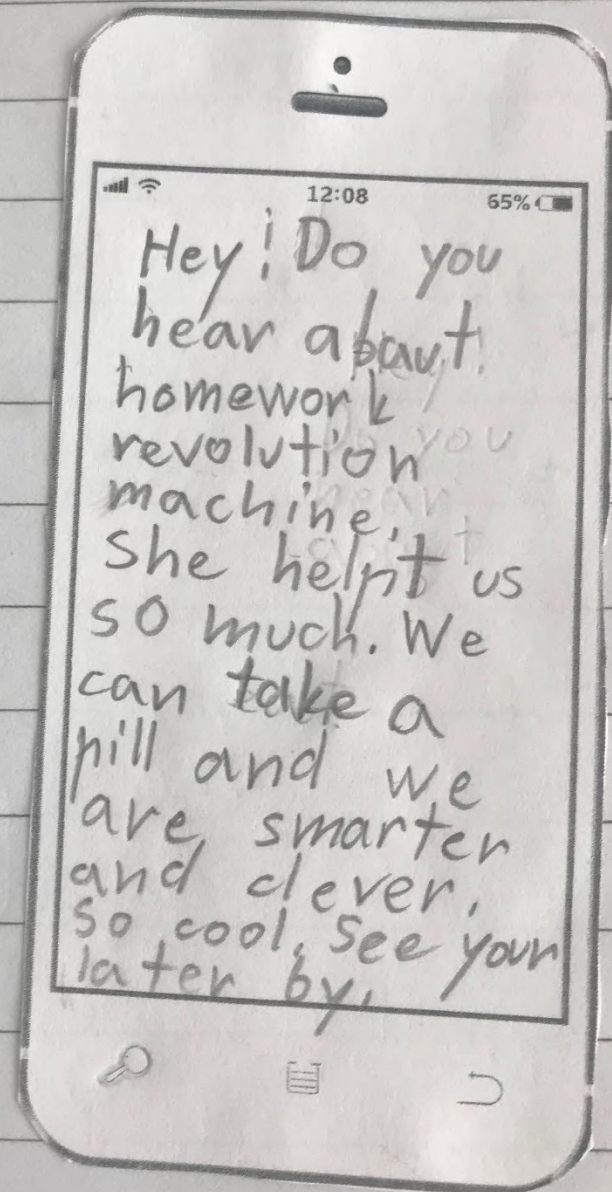 12:08 65%
Hey! Do you
hear about
homework
revolution
machine.
She helpt us
so much. We
can take a
pill and we
are smarter
and clever.
So cool. See your
later by.